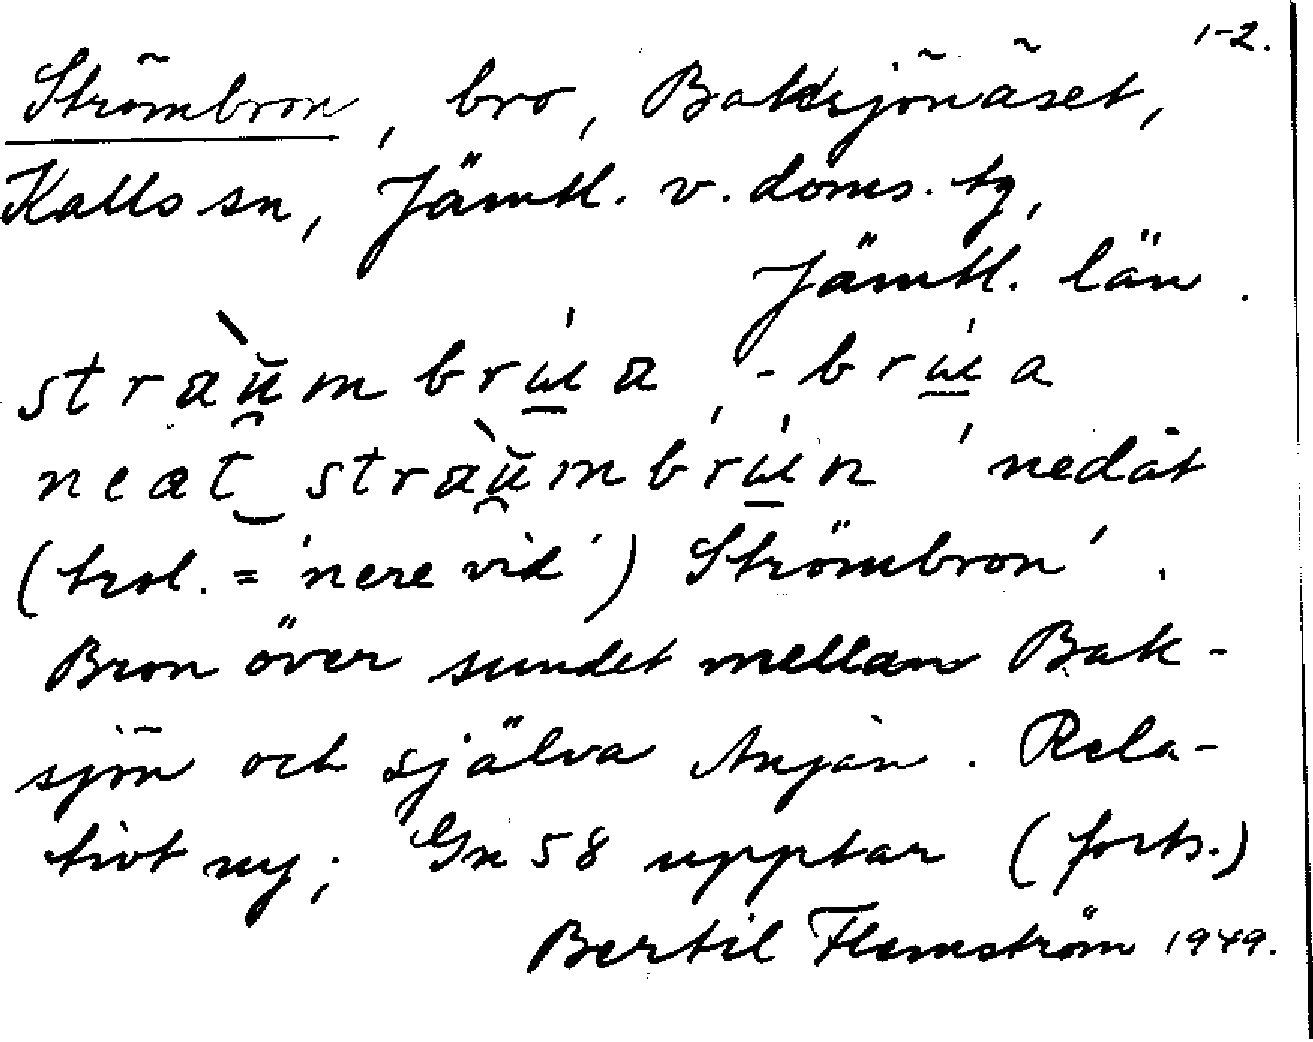 1-2.
Strömbron, bro, Baksjönäset,
Kalls sn, Jämtl. v. doms. tg,
Jämtl. län.
strau̯mbrúa, -brúa
neat strau̯mbrún 'nedåt
(trol. = 'nere vid') Strömbron'.
Bron över sundet mellan Bak-
sjön och själva Anjan. Rela-
tivt ny; Gn 58 upptar (forts.)
Bertil Flemström 1949.